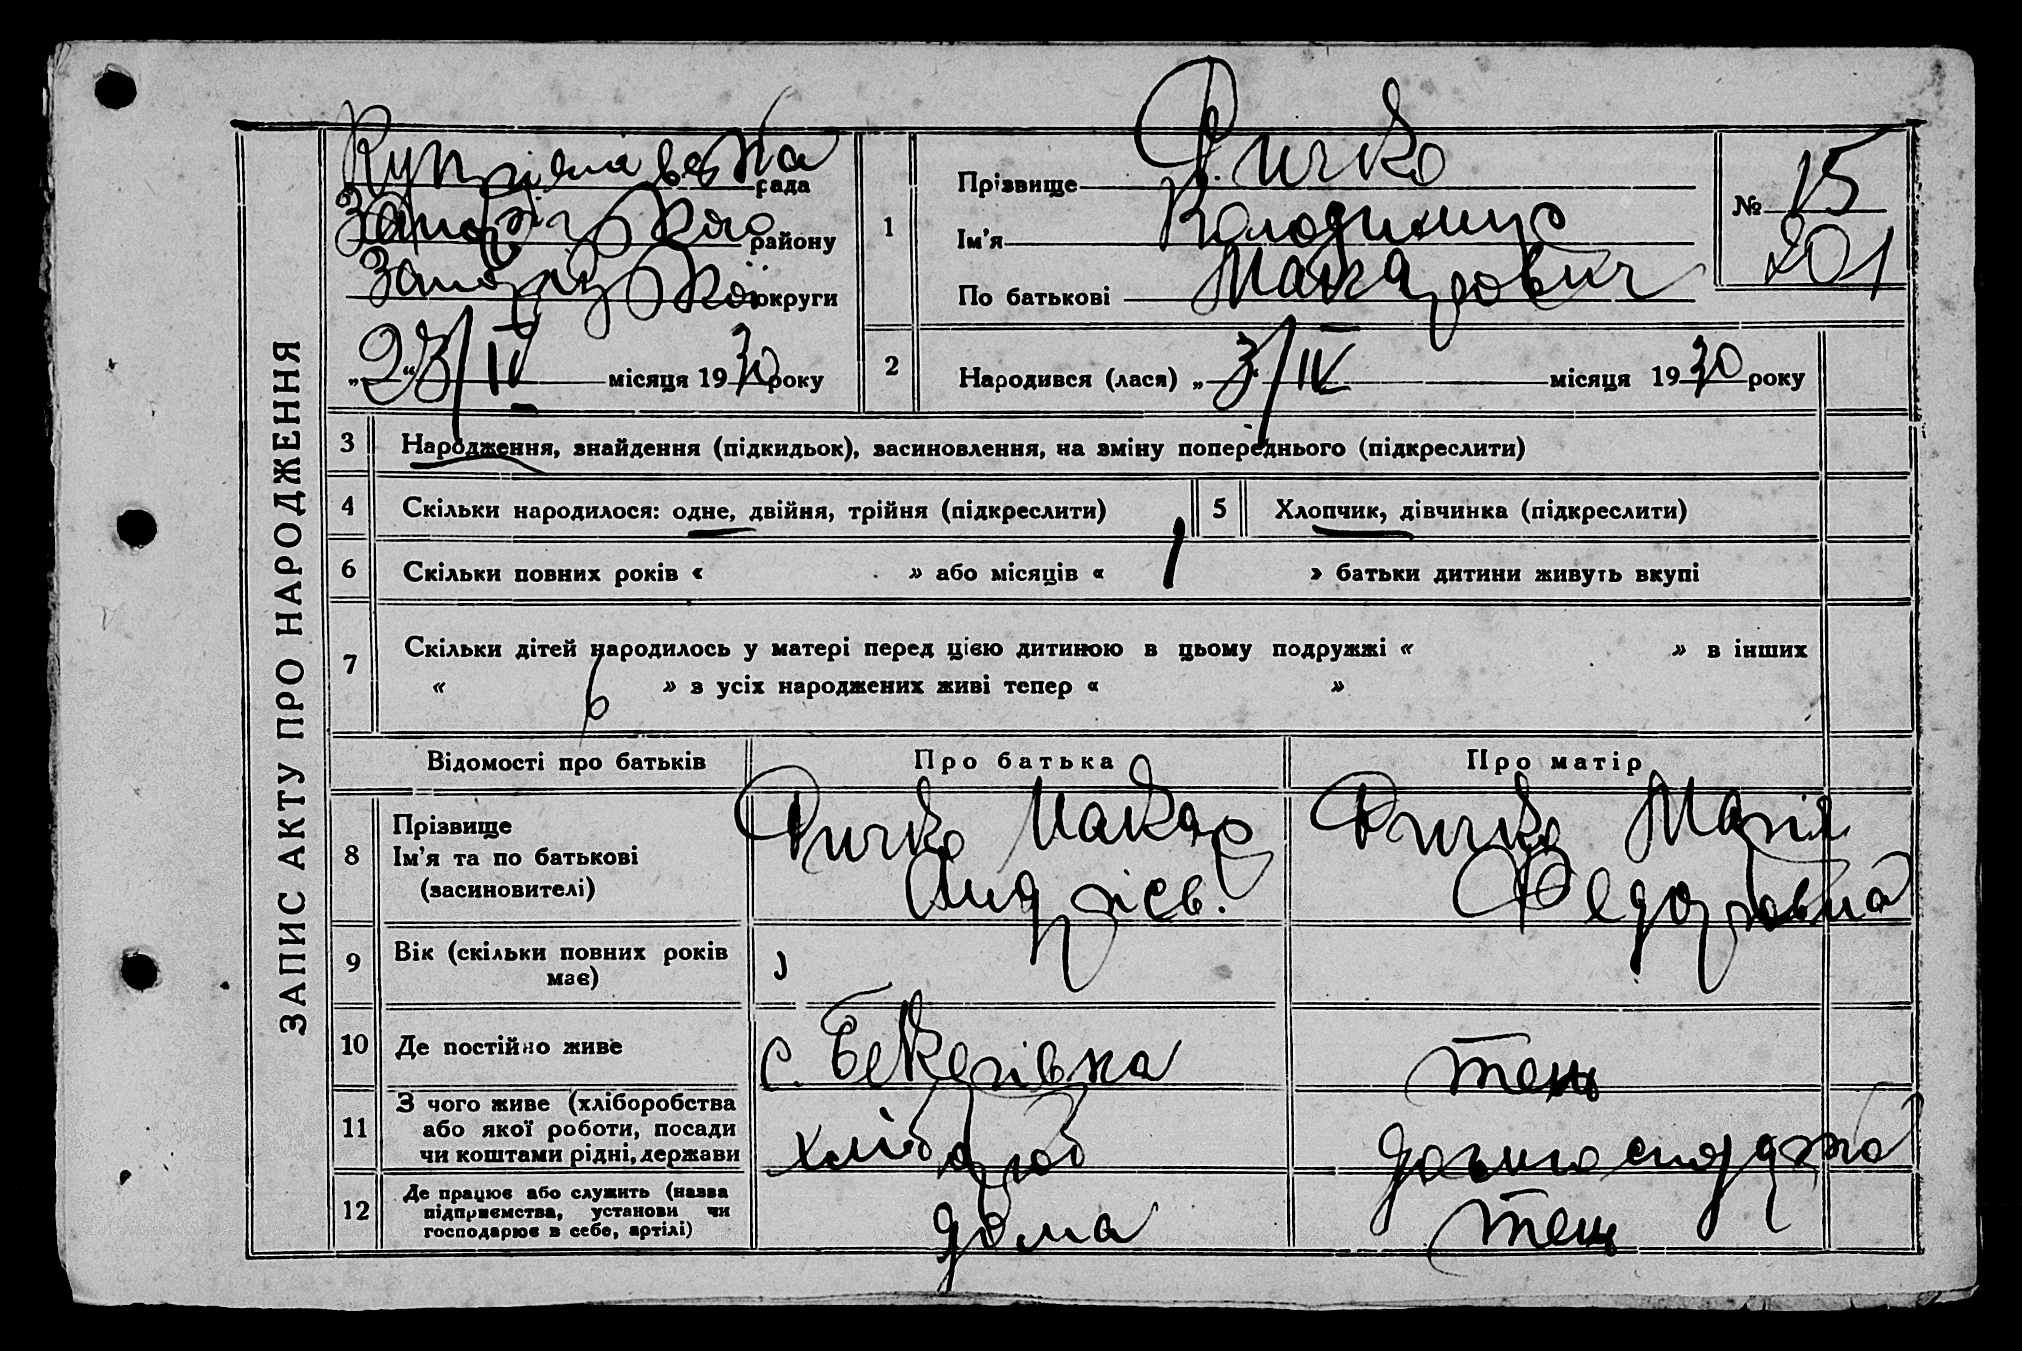 ЗАПИС АКТУ ПРО НАРОДЖЕННЯ
рада
Запорізького району
Запорізької округи
„23/IV місяця 1930 року
1
Прізвище Ричко
Ім'я Володимир
По батькові Макарович
№ 15
201
2
Народився (лася) „3/IV місяця 1930 року
3 Народження, знайдення (підкидьок), засиновлення, на зміну попереднього (підкреслити)
4 Скільки народилося: одне, двійня, трійня (підкреслити)
5 Хлопчик, дівчинка (підкреслити)
6 Скільки повних років « » або місяців « 1 » батьки дитини живуть вкупі
7 Скільки дітей народилось у матері перед цією дитиною в цьому подружжі « » в інших
« 6 » з усіх народжених живі тепер « »
Відомості про батьків Про батька Про матір
8 Прізвище
Ім'я та по батькові
(засиновителі)
Ричко Макар
Андрієв.
Ричко Марія
Федоровна
9 Вік (скільки повних років
має)
10 Де постійно живе с. Бекарівка тещ
11 З чого живе (хліборобства
або якої роботи, посади
чи коштами рідні, держави
хлібороб
12 Де працює або служить (назва
підприємства, установи чи
господарює в себе, артілі)
дома
тещ